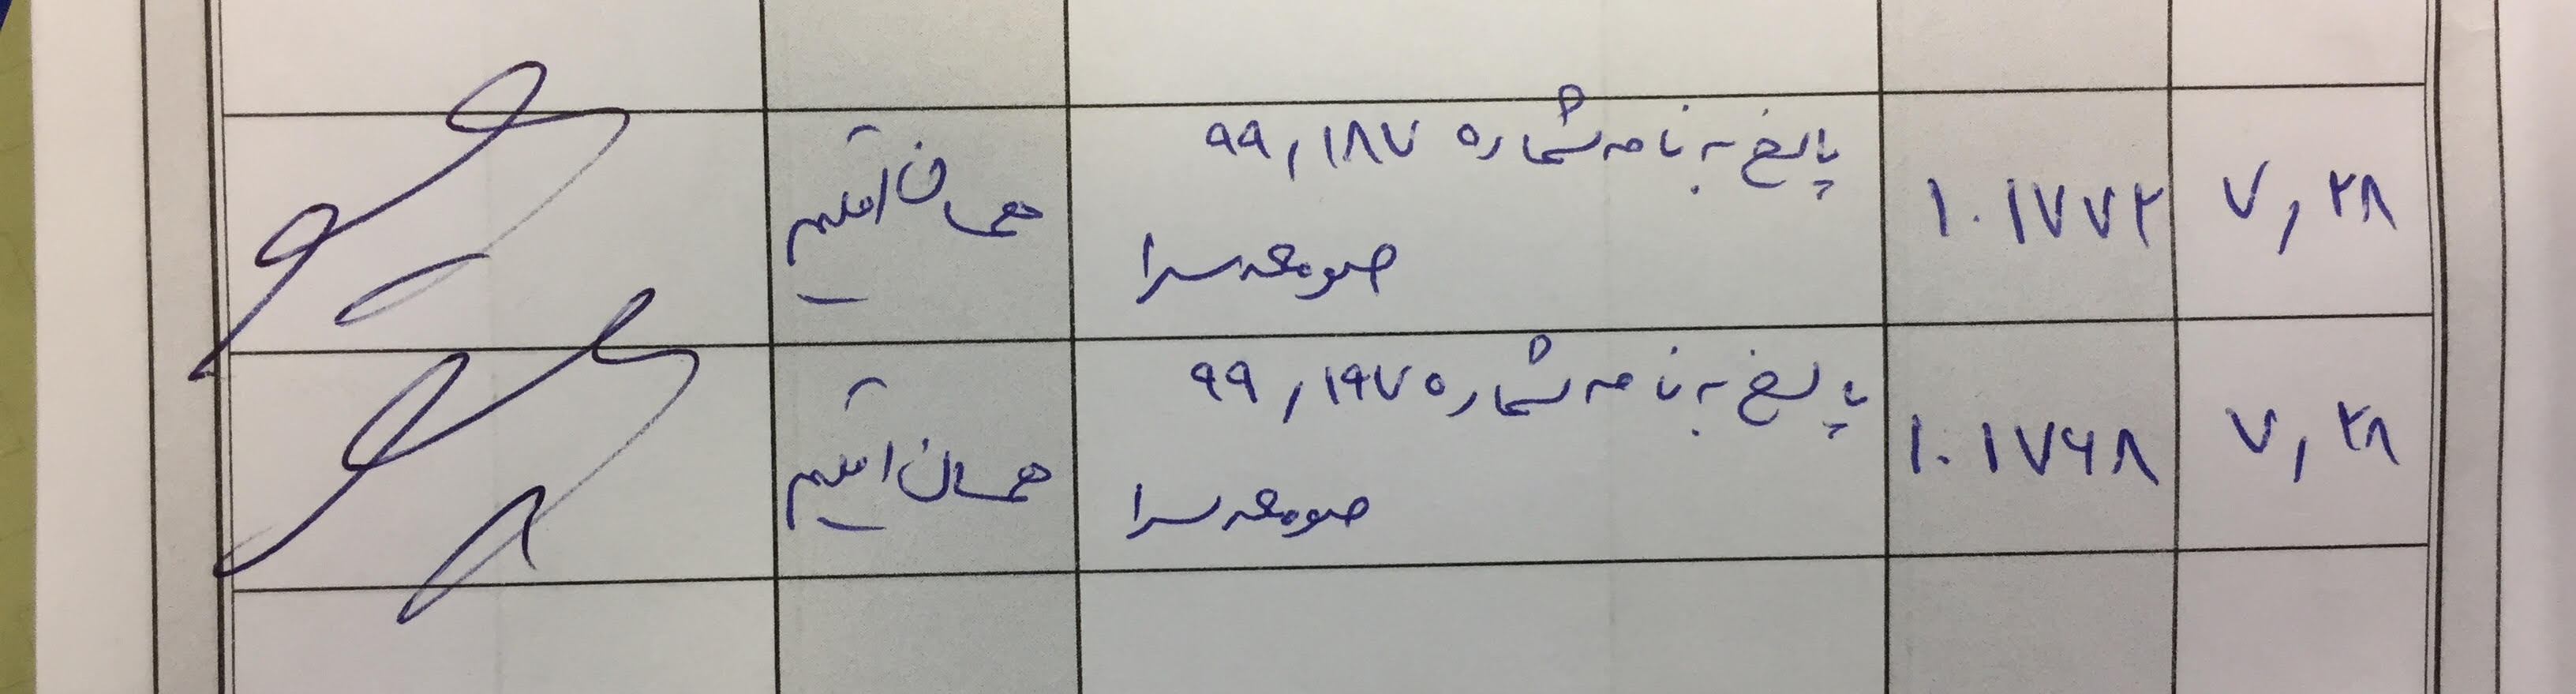 ۷٫۲۸
۱۰۱۷۷۲
پاسخ به نامه شماره ۹۹٫۱۸۷
صومعه سرا
همسان اقلیم
۷٫۲۸
۱۰۱۷۶۸
پاسخ به نامه شماره ۹۹٫۱۹۷
صومعه سرا
همسان اقلیم